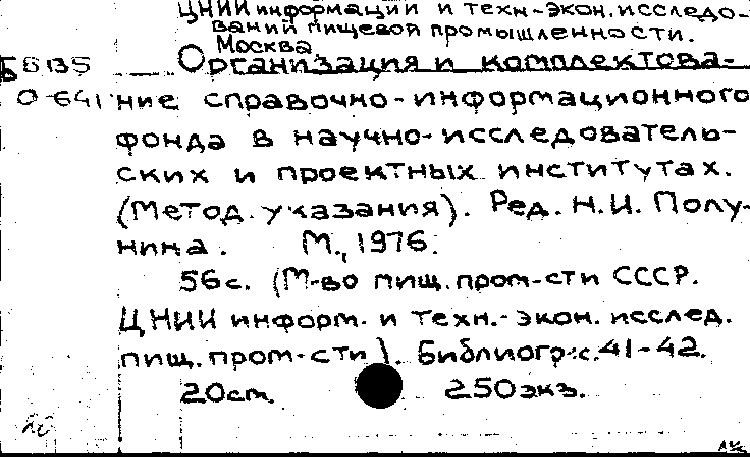 ЦНИИ информации и техн-экон. исследо-
ваний пищевой промышленности.
Москва
Б6135 Организация и комплектова-
О-641 ние справочно-информационного
фонда в научно-исследователь-
ских и проектных институтах.
(Метод. указания). Ред. Н.И. Полу-
нина. М., 1976.
56с. (М-во пищ. пром-сти СССР.
ЦНИИ информ. и техн.-экон. исслед.
пищ. пром-сти). Библиогр: с. 41-42.
20см. 250экз.